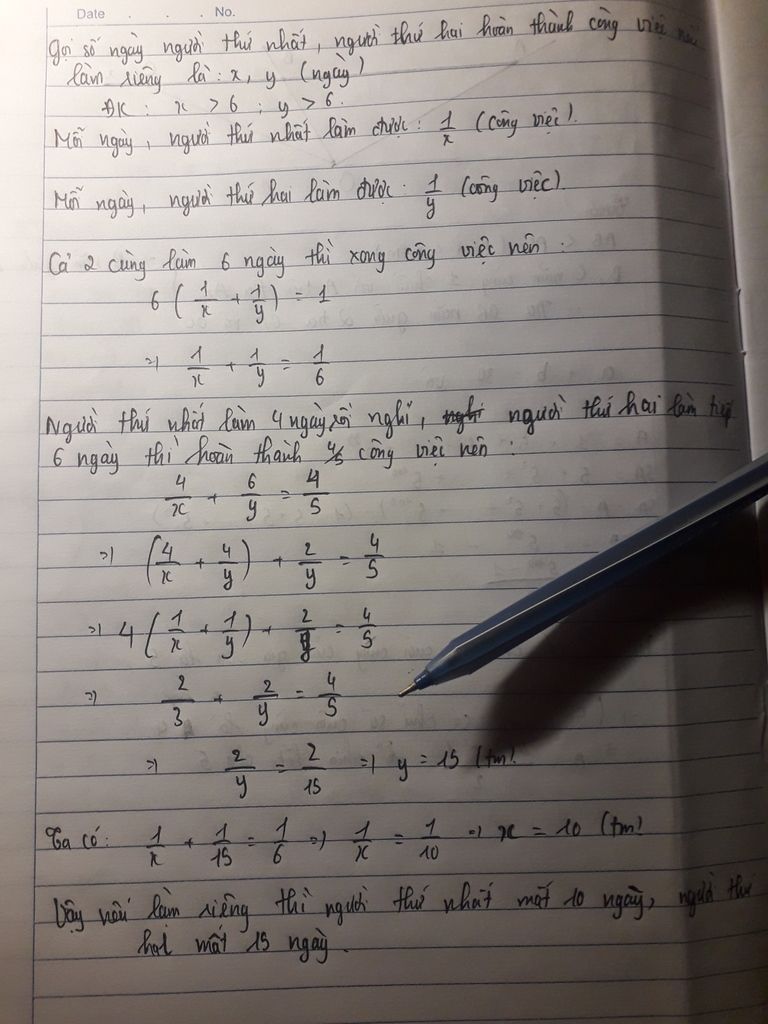 Date . . . No.
Gọi số ngày người thứ nhất, người thứ hai hoàn thành công việc nếu
làm riêng là: x, y (ngày)
ĐK: x > 6 ; y > 6.
Mỗi ngày, người thứ nhất làm được: 1/x (công việc).
Mỗi ngày, người thứ hai làm được: 1/y (công việc)
Cả 2 cùng làm 6 ngày thì xong công việc nên:
6 (1/x + 1/y) = 1
=> 1/x + 1/y = 1/6
Người thứ nhất làm 4 ngày rồi nghỉ, nghỉ người thứ hai làm tiếp
6 ngày thì hoàn thành 4/5 công việc nên:
4/x + 6/y = 4/5
=> (4/x + 4/y) + 2/y = 4/5
=> 4 (1/x + 1/y) + 2/y = 4/5
=> 2/3 + 2/y = 4/5
=> 2/y = 2/15 => y = 15 (tm)
Ta có: 1/x + 1/15 = 1/6 => 1/x = 1/10 => x = 10 (tm)
Vậy nếu làm riêng thì người thứ nhất mất 10 ngày, người thứ
hai mất 15 ngày.